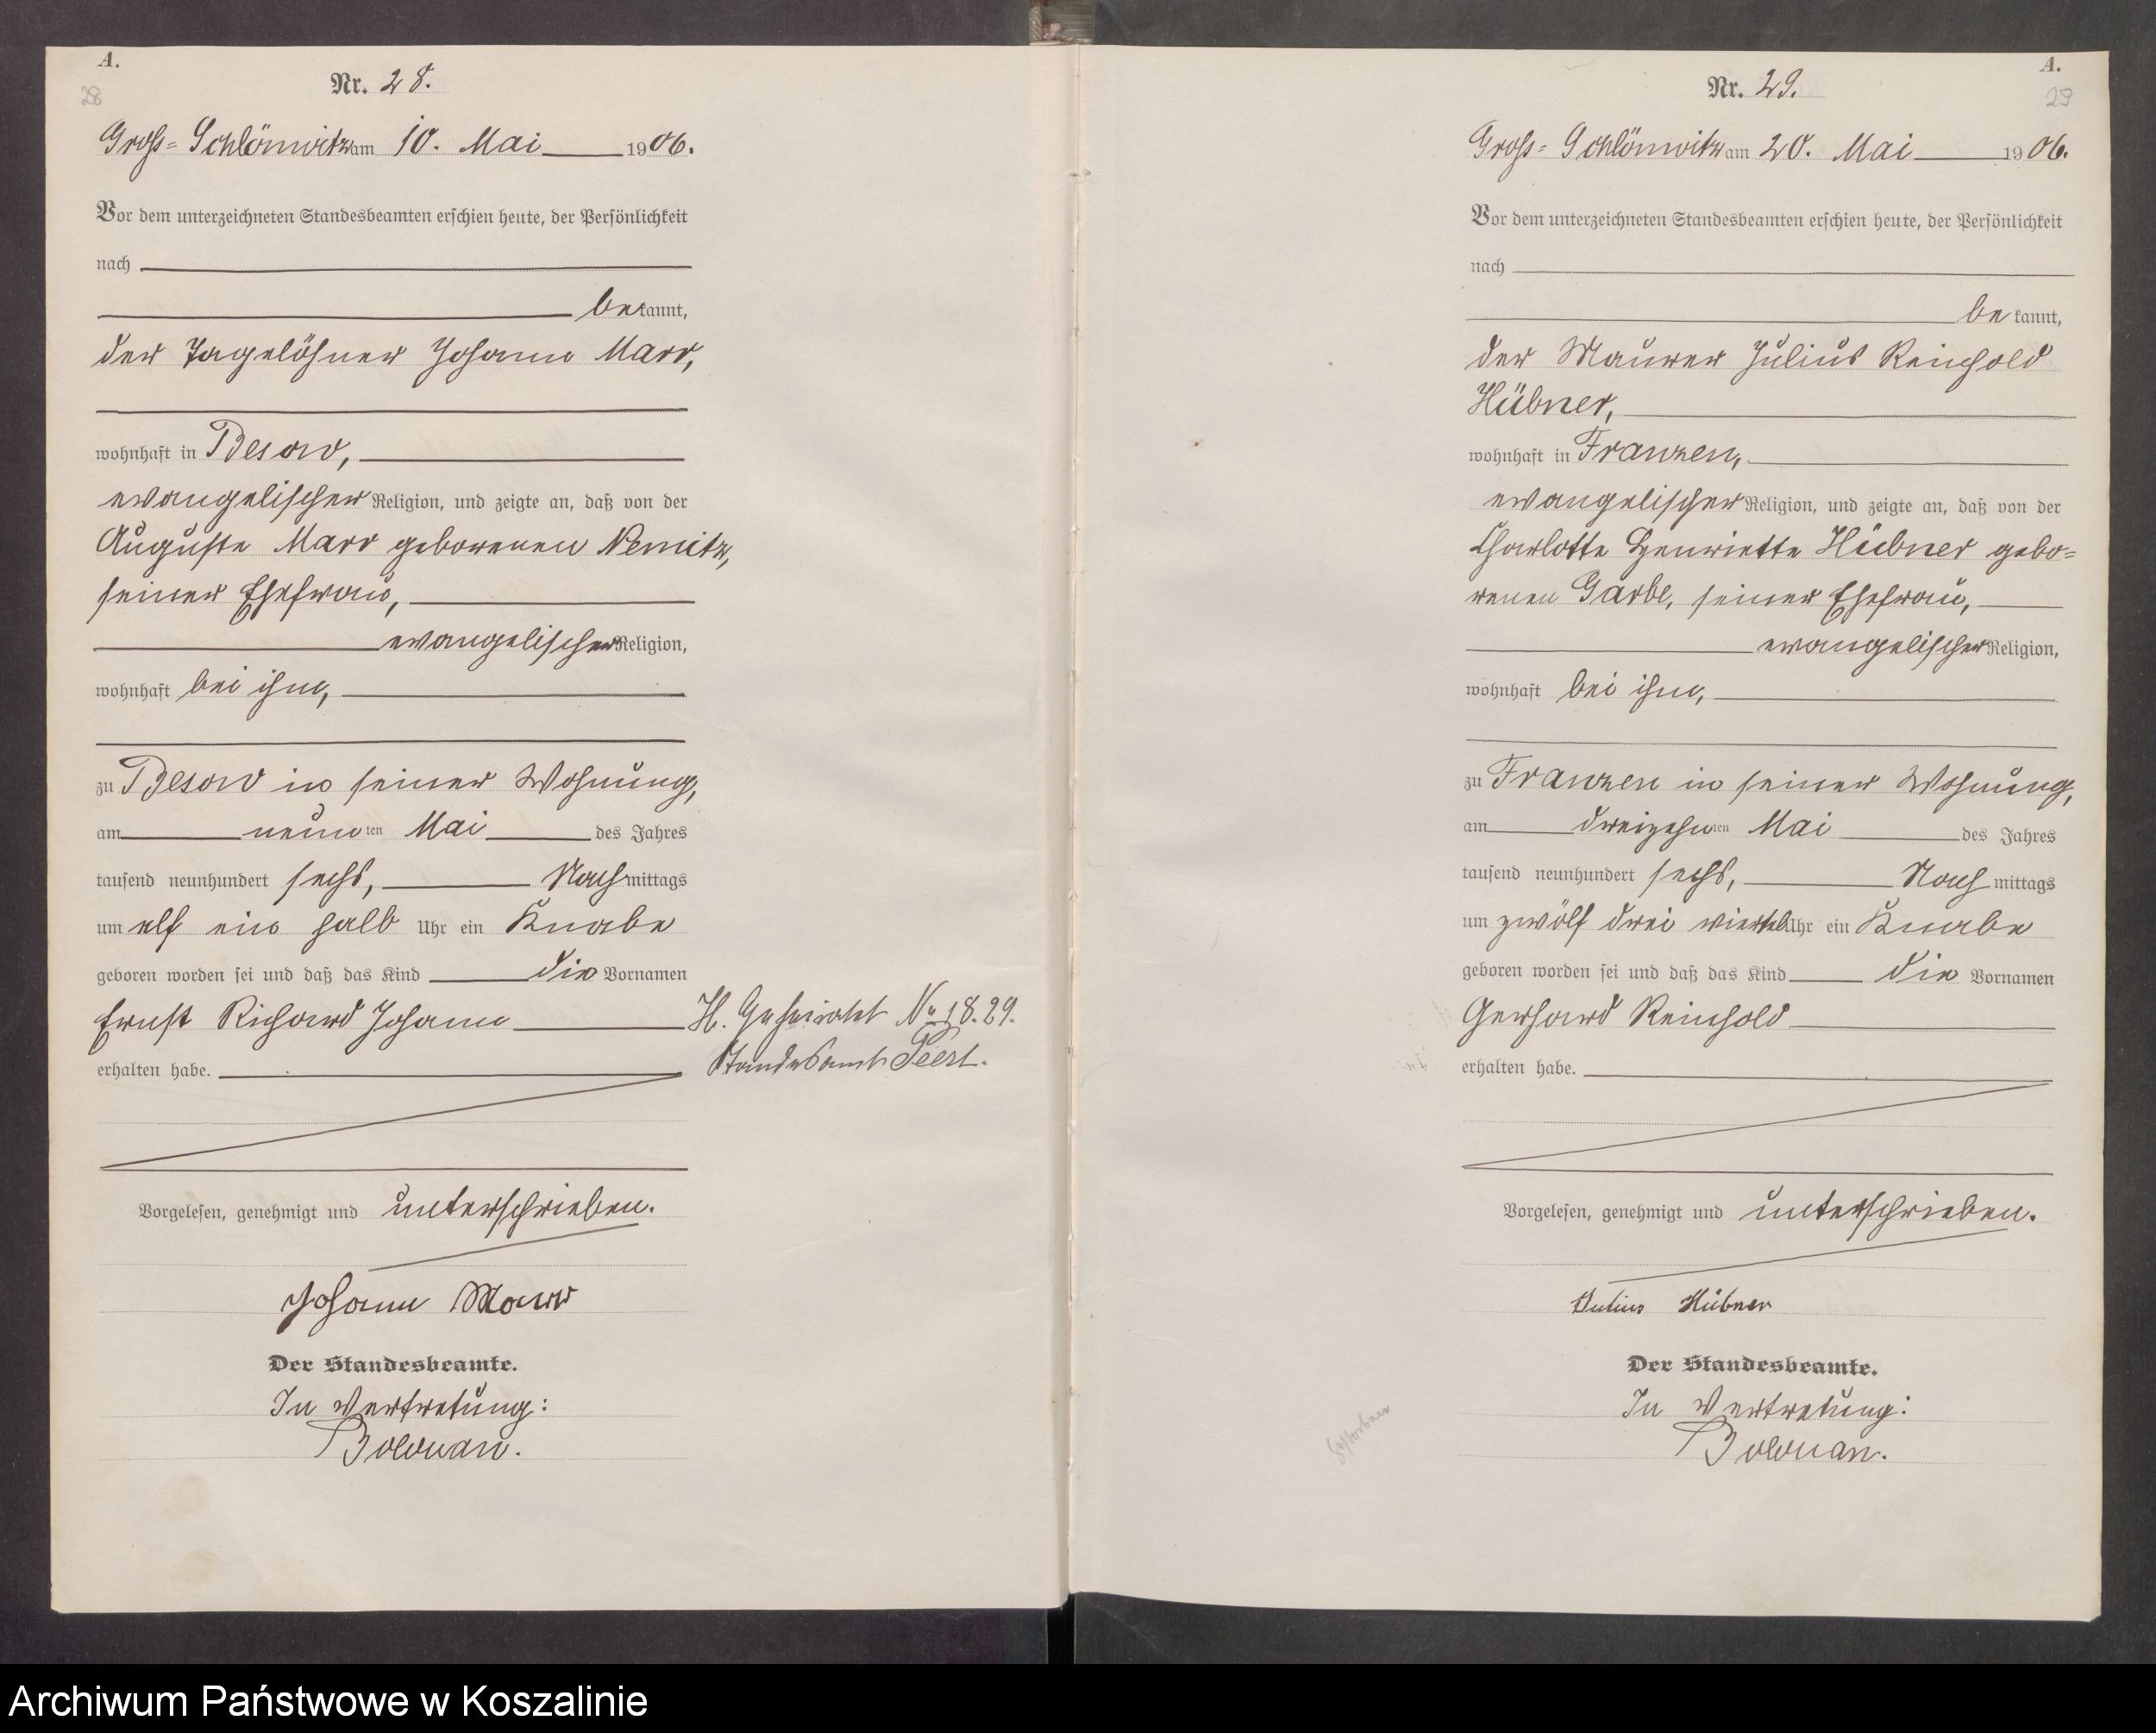 A.
28
Nr. 28.
Gross-Schlönwitz am 10. Mai 1906.
Vor dem unterzeichneten Standesbeamten erschien heute, der Persönlichkeit
nach
bekannt,
der Tagelöhner Johann Marr,
wohnhaft in Besow,
evangelischer Religion, und zeigte an, daß von der
Auguste Marr geborenen Nemitz,
seiner Ehefrau,
evangelischer Religion,
wohnhaft bei ihm,
zu Besow in seiner Wohnung,
am neunten Mai des Jahres
tausend neunhundert sechs, Nachmittags
um elf ein halb Uhr ein Knabe
geboren worden sei und daß das Kind die Vornamen
Ernst Richard Johann
erhalten habe.
H. Geheiratet Nr 18.29.
Standesamt Peest.
Vorgelesen, genehmigt und unterschrieben.
Johann Marr
Der Standesbeamte.
In Vertretung:
A.
29
Nr. 29.
Gross-Schlönwitz am 20. Mai 1906.
Vor dem unterzeichneten Standesbeamten erschien heute, der Persönlichkeit
nach
bekannt,
der Maurer Julius Reinhold
Hübner,
wohnhaft in Franzen,
evangelischer Religion, und zeigte an, daß von der
Charlotte Henriette Hübner gebo=
renen Garbe, seiner Ehefrau,
evangelischer Religion,
wohnhaft bei ihm,
zu Franzen in seiner Wohnung,
am dreizehnten Mai des Jahres
tausend neunhundert sechs, Nachmittags
um zwölf drei viertel Uhr ein Knabe
geboren worden sei und daß das Kind die Vornamen
Gerhard Reinhold
erhalten habe.
Vorgelesen, genehmigt und unterschrieben.
Julius Hübner
Der Standesbeamte.
In Vertretung:
Gestorben
Archiwum Państwowe w Koszalinie